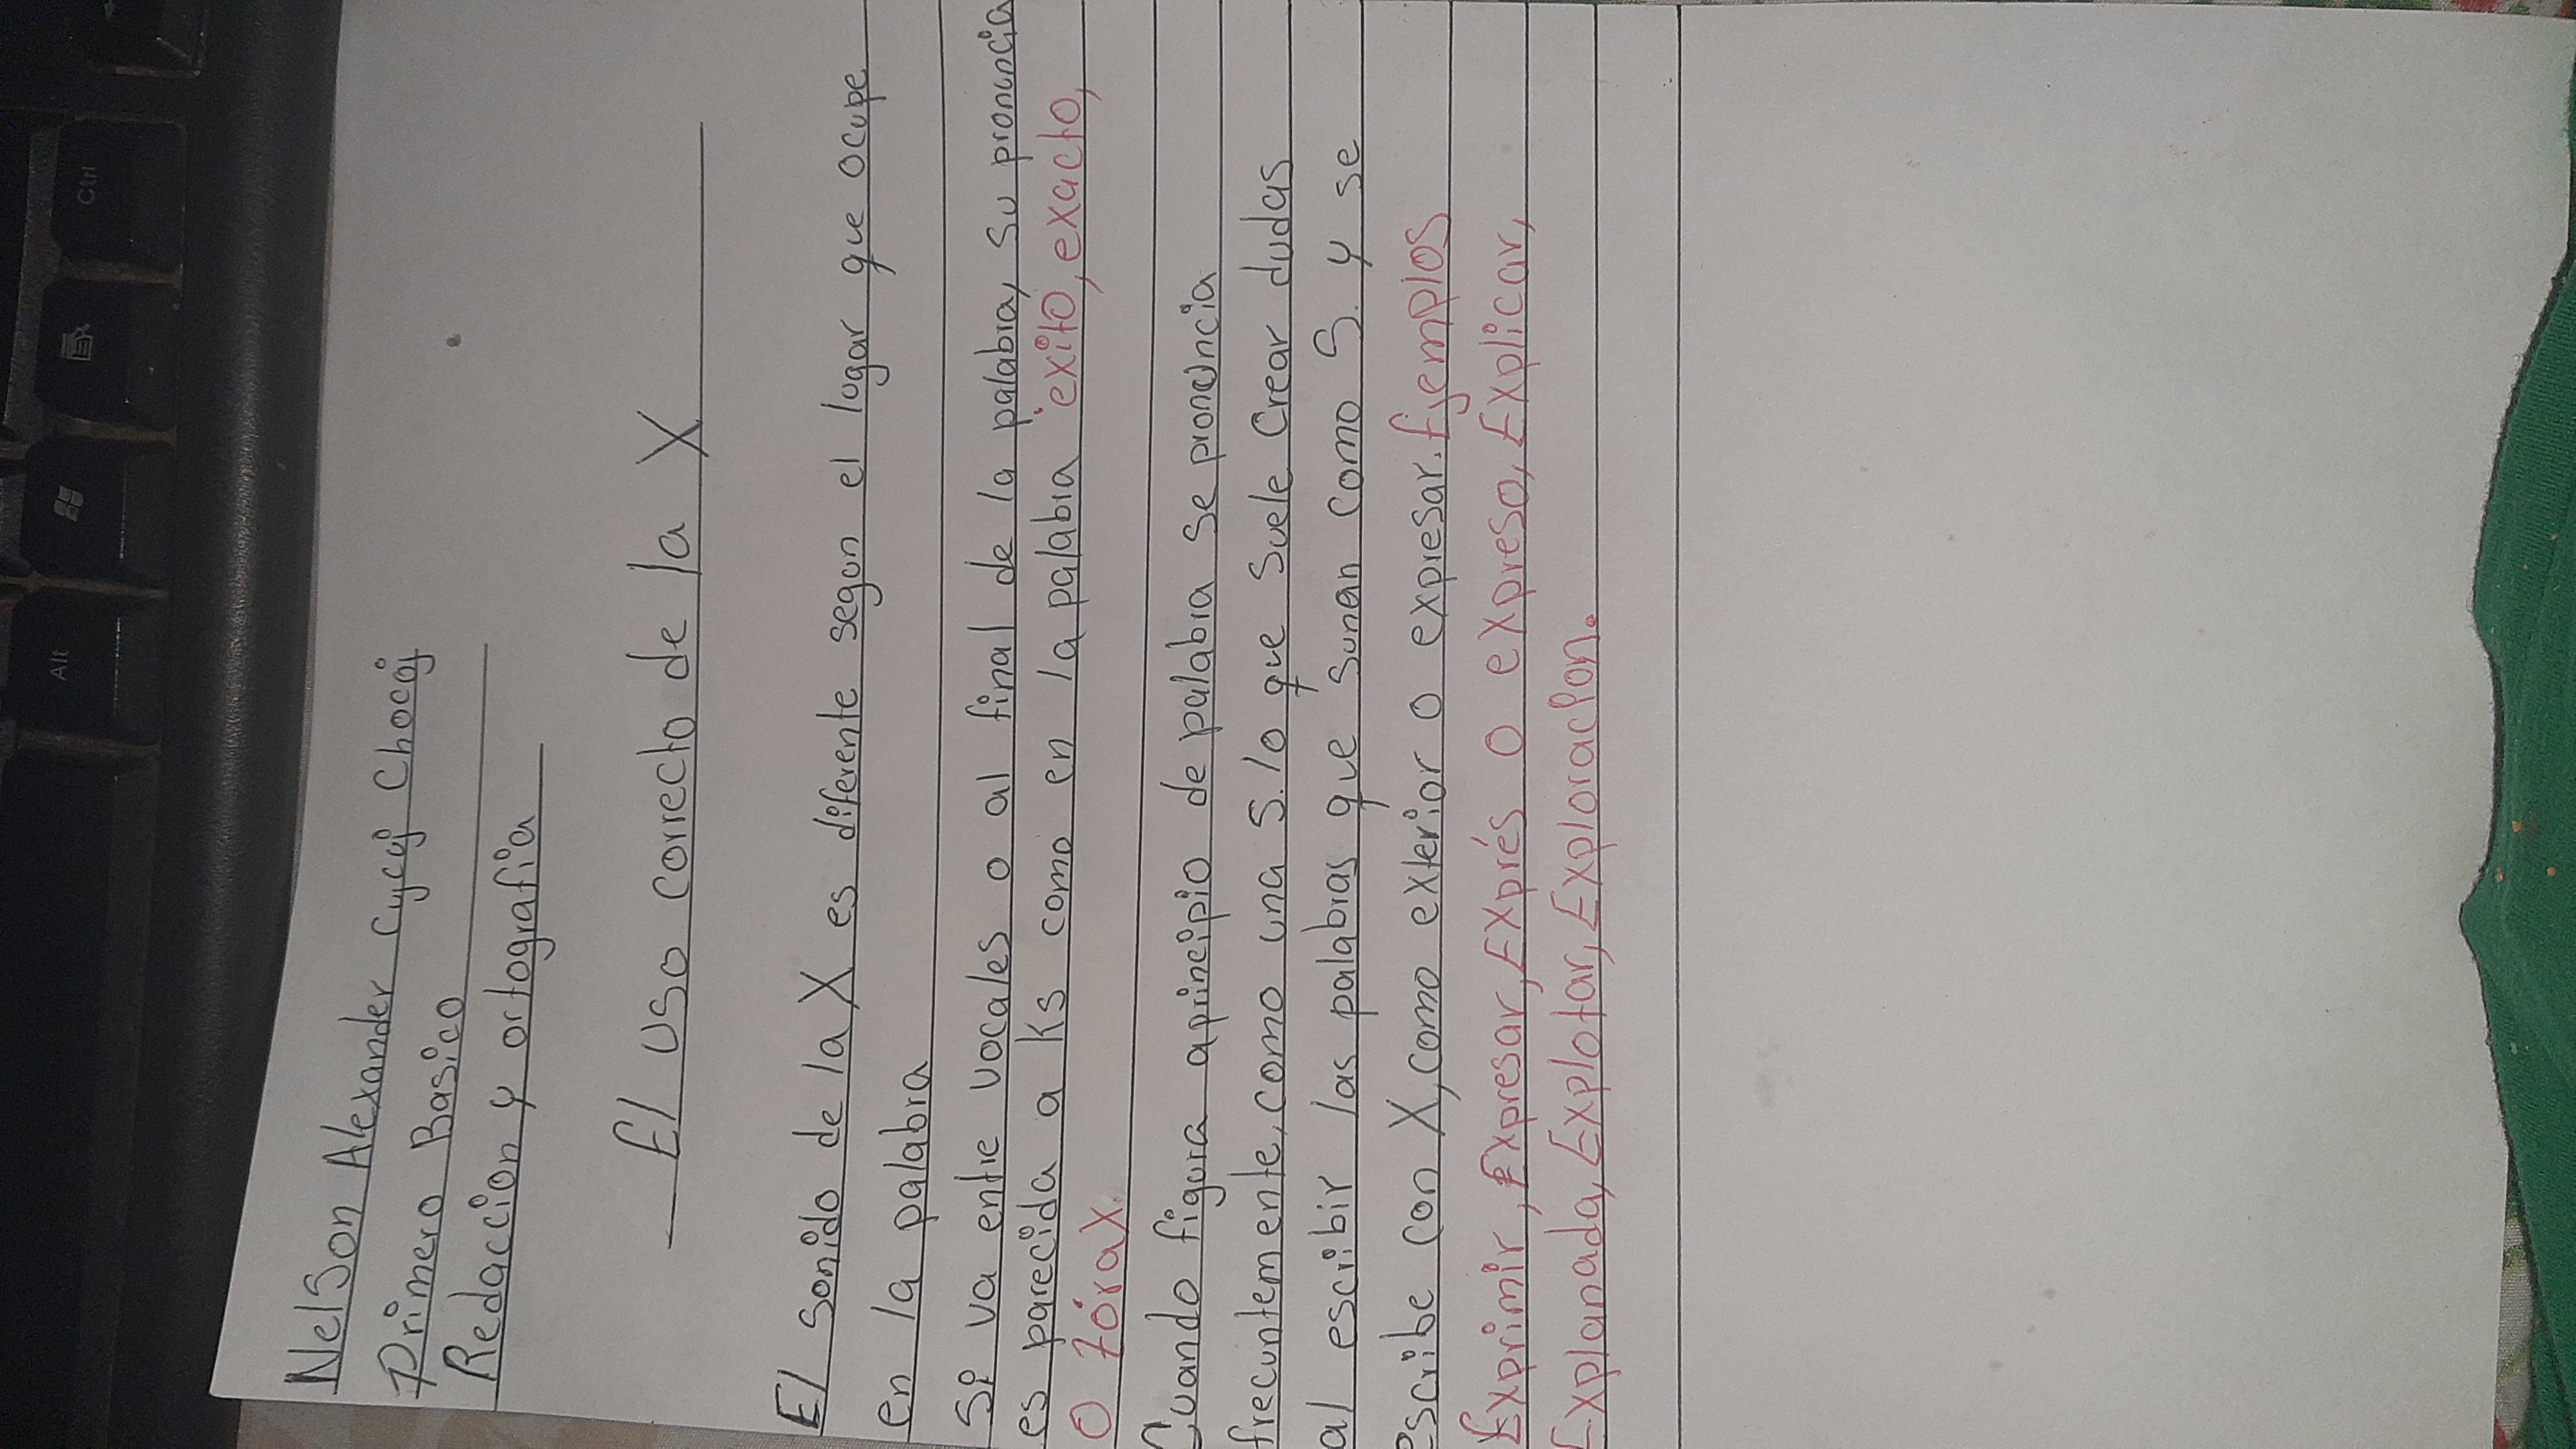 Alt
Ctrl
Nelson Alexander Cycyj Chocoj
Primero Basico
Redacion y ortografia
El uso correcto de la X
El sonido de la X es diferente segun el lugar que ocupe
en la palabra
Si va entre vocales o al final de la palabra, su pronuncia
es parecida a Ks como en la palabra éxito, exacto,
O tórax.
Cuando figura a principio de palabra se pronuncia
frecuntemente, como una s. lo que suele Crear dudas
al escribir las palabras que sunan como S. y se
escribe con X, como exterior o expresar. Ejemplos
Exprimir, Expresar, Exprés o expreso, Explicar,
Explanada, Explotar, Exploracion.